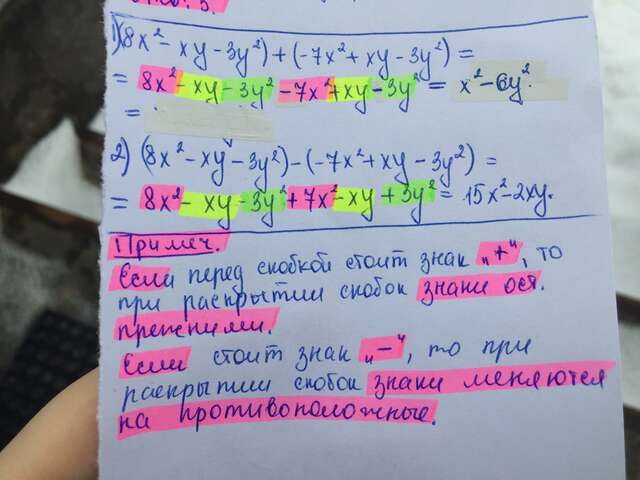 1)(8x² - xy - 3y²) + (-7x² + xy - 3y²) =
= 8x² - xy - 3y² - 7x² + xy - 3y² = x² - 6y².
=
2) (8x² - xy - 3y²) - (-7x² + xy - 3y²) =
= 8x² - xy - 3y² + 7x² - xy + 3y² = 15x² - 2xy.
Примеч.
Если перед скобкой стоит знак „+“, то
при раскрытии скобок знаки ост.
прежними.
Если стоит знак „-“, то при
раскрытии скобок знаки меняются
на противоположные.